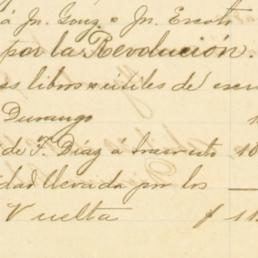 á Jn. Gonz. o Jn. Escoti
por la Revolución.
os libros o útiles de escri
Durango
de F. Díaz á 10
idad llevada por los
Vuelta $ 11